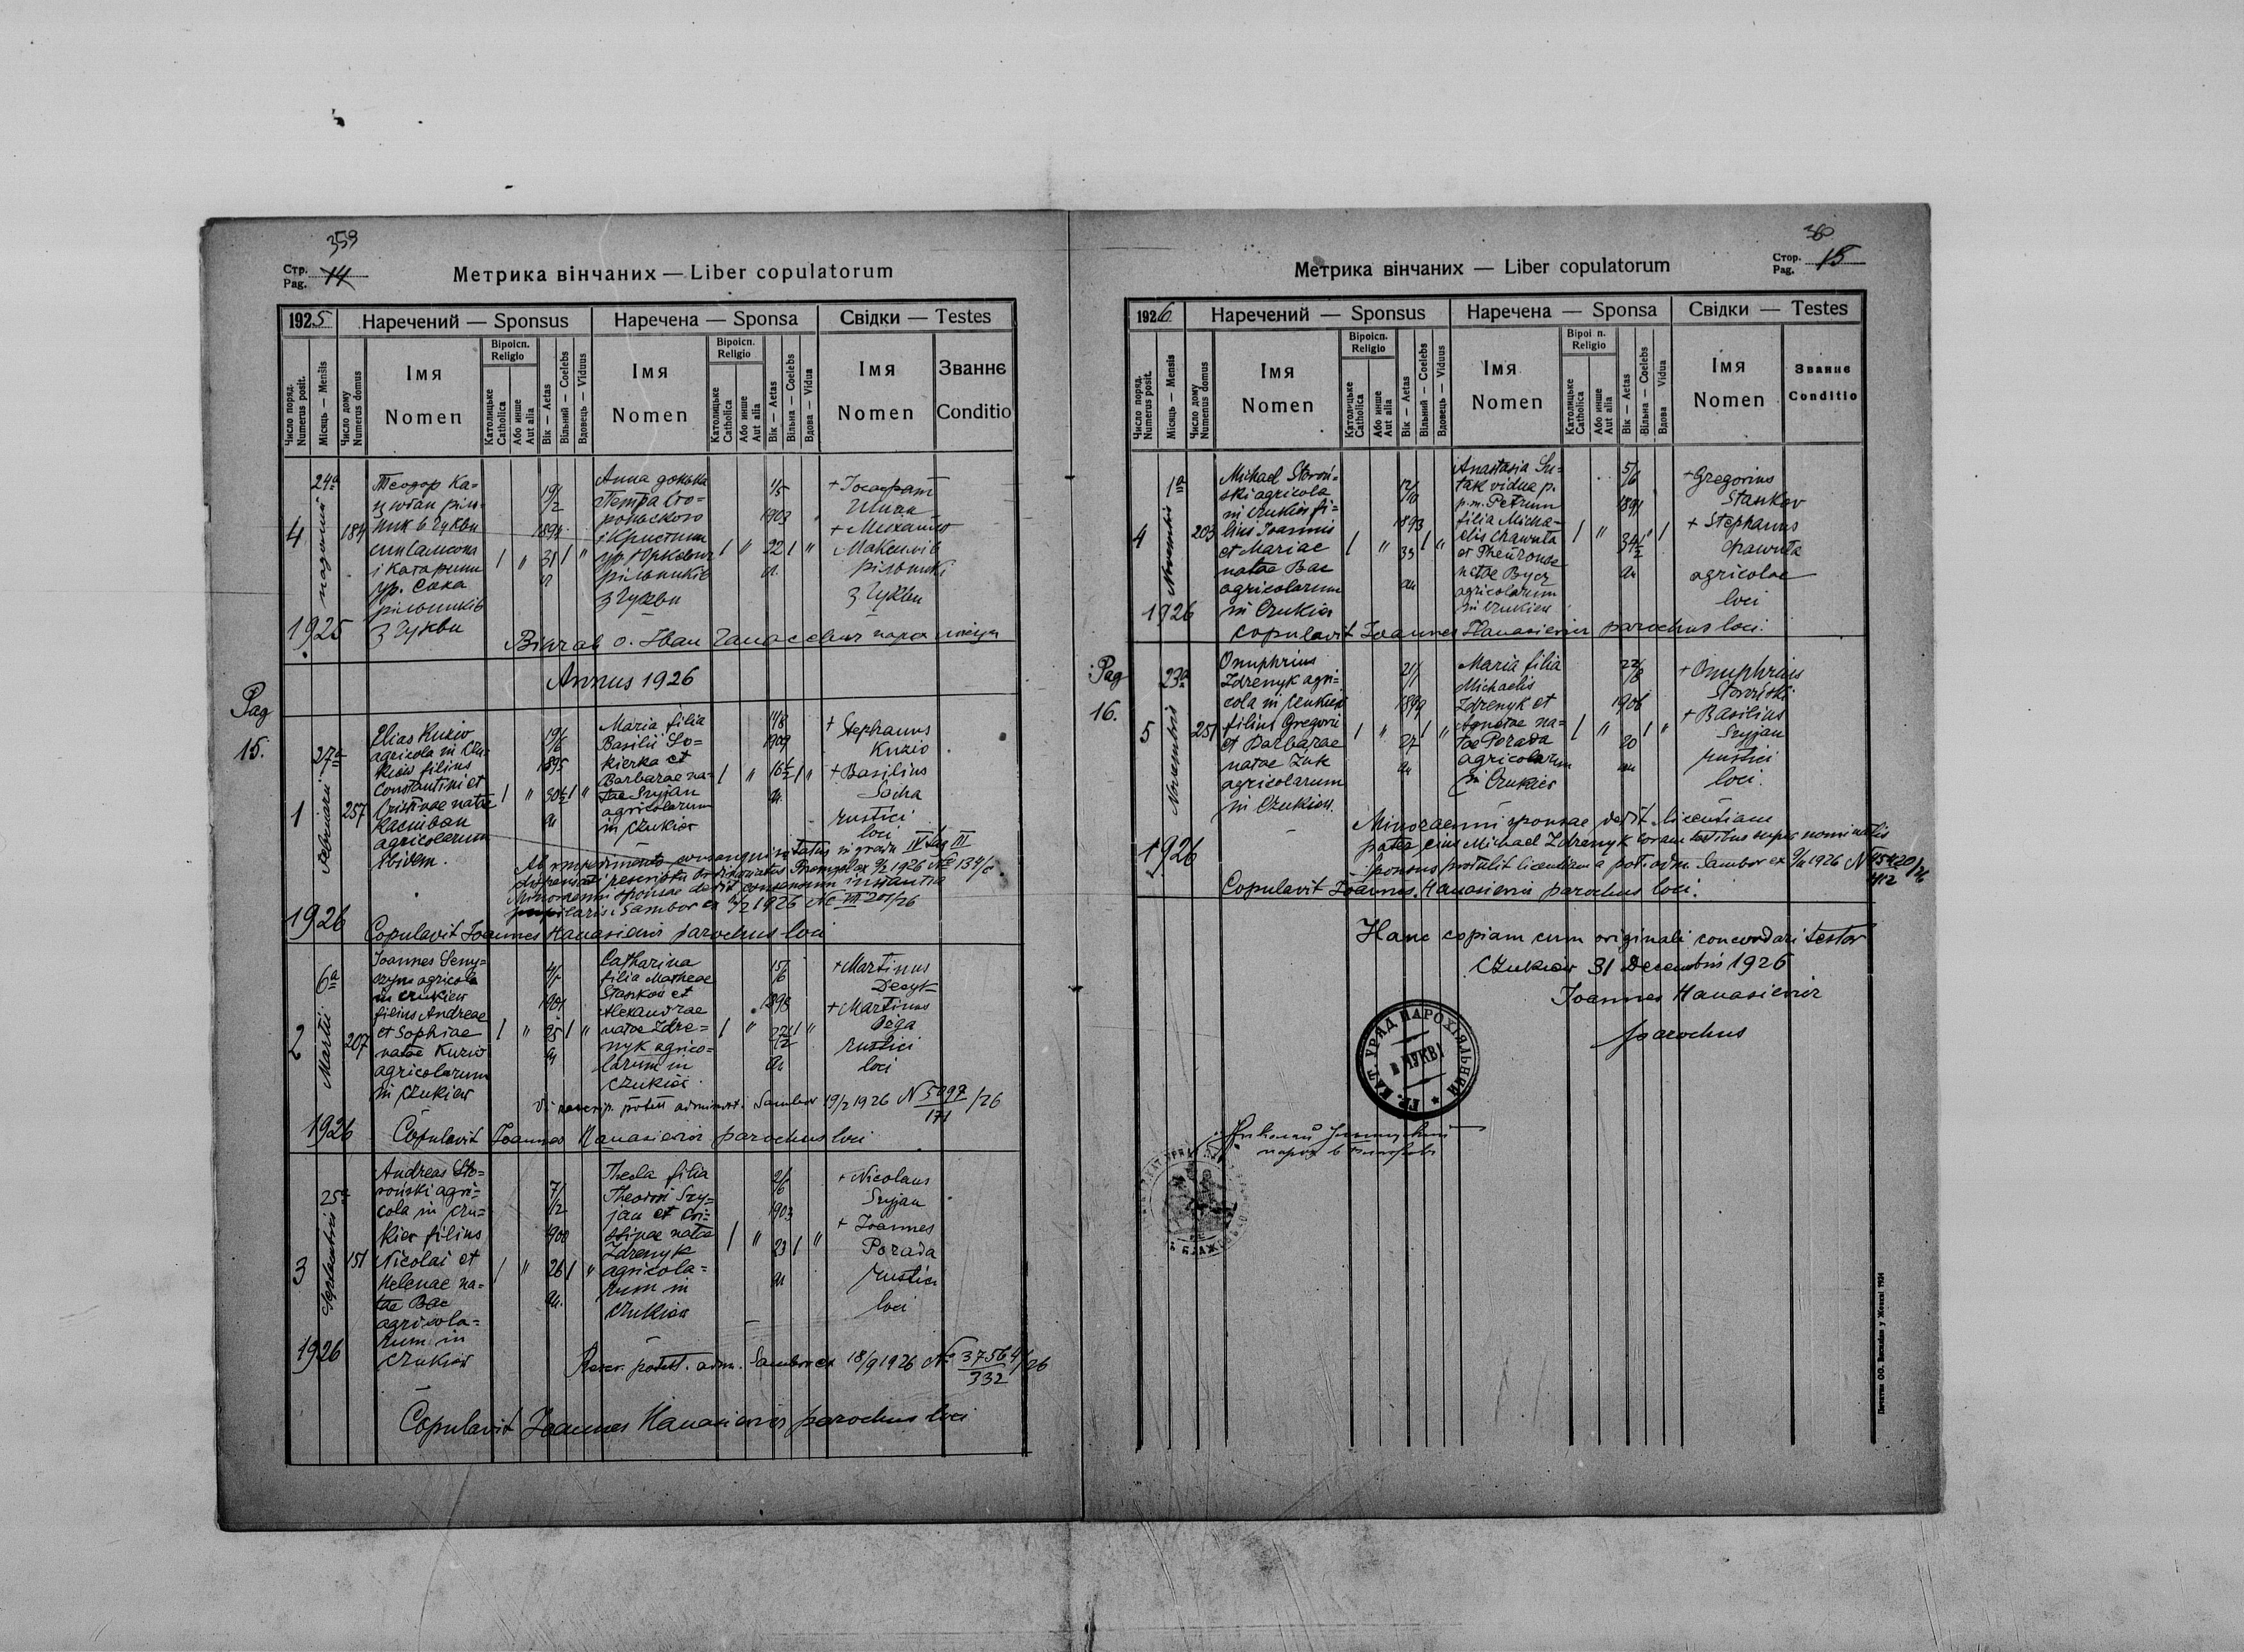 359
Стр. 14
Pag.
Метрика вінчаних — Liber copulatorum
1925
Наречений — Sponsus
Наречена — Sponsa
Свідки — Testes
Число поряд.
Numerus posit.
Місяць — Mensis
Число дому
Numerus domus
Імя
Nomen
Віроісп.
Religio
Католицьке
Catholica
Або инше
Aut alia
Вік — Aetas
Вільний — Coelebs
Вдовець — Viduus
Імя
Nomen
Віроісп.
Religio
Католицьке
Catholica
Або инше
Aut alia
Вік — Aetas
Вільна — Coelebs
Вдова — Vidua
Імя
Nomen
Званнє
Conditio
4
24a
184
1925
Теодор Ка-
рільникiв
з Чукви
19/2
1894
31
Анна донька
Петра Сто-
рільників
з Чукви
1/5
1903
22
+ Йосафат
+ Михайло
рільникі
з Чукви
Annus 1926
Pag
15.
1
27a
Februarii
257
1926
Elias Kuzio
agricola in Czu-
kiew filius
Constantini et
Cristinae natae
agricolarum
ibidem.
19/6
1895
30 1/2
an
Maria filia
Basilii So-
kierka et
Barbarae na-
tae Szyjan
agricolarum
in Czukiew
11/8
1909
16 1/2
an
+ Stephanus
Kuzio
+ Basilius
Socha
rustici
loci
Ab impedimento consanguinitatis in gradu IV tag III
Minorenni sponsae dedit consensum instantia
pupilaris Sambor
Copulavit Joannes Hanasiewicz parochus loci
2
6a
Martii
207
1926
Joannes Seny-
szyn agricola
in Czukiew
filius Andreae
et Sophiae
natae Kuzio
agricolarum
in Czukiew
1901
25
an
Catharina
filia Matheae
Stankow et
Alexandrae
natae Zdre-
nyk agrico-
larum in
Czukiew.
15/6
1898
an
+ Martinus
Decyk
+ Martinus
rustici
loci
Sambor 19/2 1926 N 5297/171/26
Copulavit Joannes Hanasiewicz parochus loci
3
25a
Septembris
151
1926
Andreas Sto-
roński agri-
cola in Czu-
kiew filius
Nicolai et
Helenae na-
tae Bac
agricola-
rum in
Czukiew
7/12
1900
26
an.
Thecla filia
Theodori Szy-
jan et Cri-
stinae natae
Zdrenyk
agricola-
rum in
Czukiew
2/6
1903
23
an
+ Nicolaus
Szyjan
+ Joannes
Porada
rustici
loci
Sambor ex 18/9 1926 No 37564/332/26
Copulavit Joannes Hanasiewicz parochus loci
360
Стор. 15
Pag.
Метрика вінчаних — Liber copulatorum
1926
Наречений — Sponsus
Наречена — Sponsa
Свідки — Testes
Число поряд.
Numerus posit.
Місяць — Mensis
Число дому
Numerus domus
Імя
Nomen
Віроісп.
Religio
Католицьке
Catholica
Або инше
Aut alia
Вік — Aetas
Вільний — Coelebs
Вдовець — Viduus
Імя
Nomen
Religio
Католицьке
Catholica
Або инше
Aut alia
Вік — Aetas
Вільна — Coelebs
Вдова Vidua
Імя
Nomen
Званнє
Conditio
4
1a
Novembris
203
1926
Michael Storoń-
ski agricola
in Czukiew fi-
lius Joannis
et Mariae
natae Bac
agricolarum
in Czukiew
12/10
1893
33
an
Anastasia Su-
tak vidua p.
p.m. Petrum
filia Micha-
elis Chawuta
natae Bycz
agricolarum
in Czukiew
5/6
1891
34 1/2
an
+ Gregorius
Stankow
+ Stephanus
Chawuta
agricolae
loci
Copulavit Joannes Hanasiewicz parochus loci.
Pag
16.
5
23a
Novembris
251
1926
Onuphrius
Zdrenyk agri-
cola in Czukiew
filius Gregorii
et Barbarae
natae Żuk
agricolarum
in Czukiew.
21/1
1899
27
an
Maria filia
Michaelis
Zdrenyk et
Agnetae na-
tae Porada
agricolarum
in Czukiew
22/8
1906
20
an
+ Onuphrius
Storoński
+ Basilius
Szyjan
rustici
loci.
Minorenni sponsae dedit licentiam
pater eius Michael Zdrenyk coram testibus supra nominatis
Sponsus protulit licentiam a pot. adm. Sambor
Copulavit Joannes Hanasiewicz parochus loci.
Hanc copiam cum originali concordari testor
Czukiew 31 Decembris 1926
Joannes Hanasiewicz
parochus
ГР. КАТ. УРЯД ПАРОХІЯЛЬНИЙ
в ЧУКВІ
Печатня ОО. Василіян у Жовкві 1924